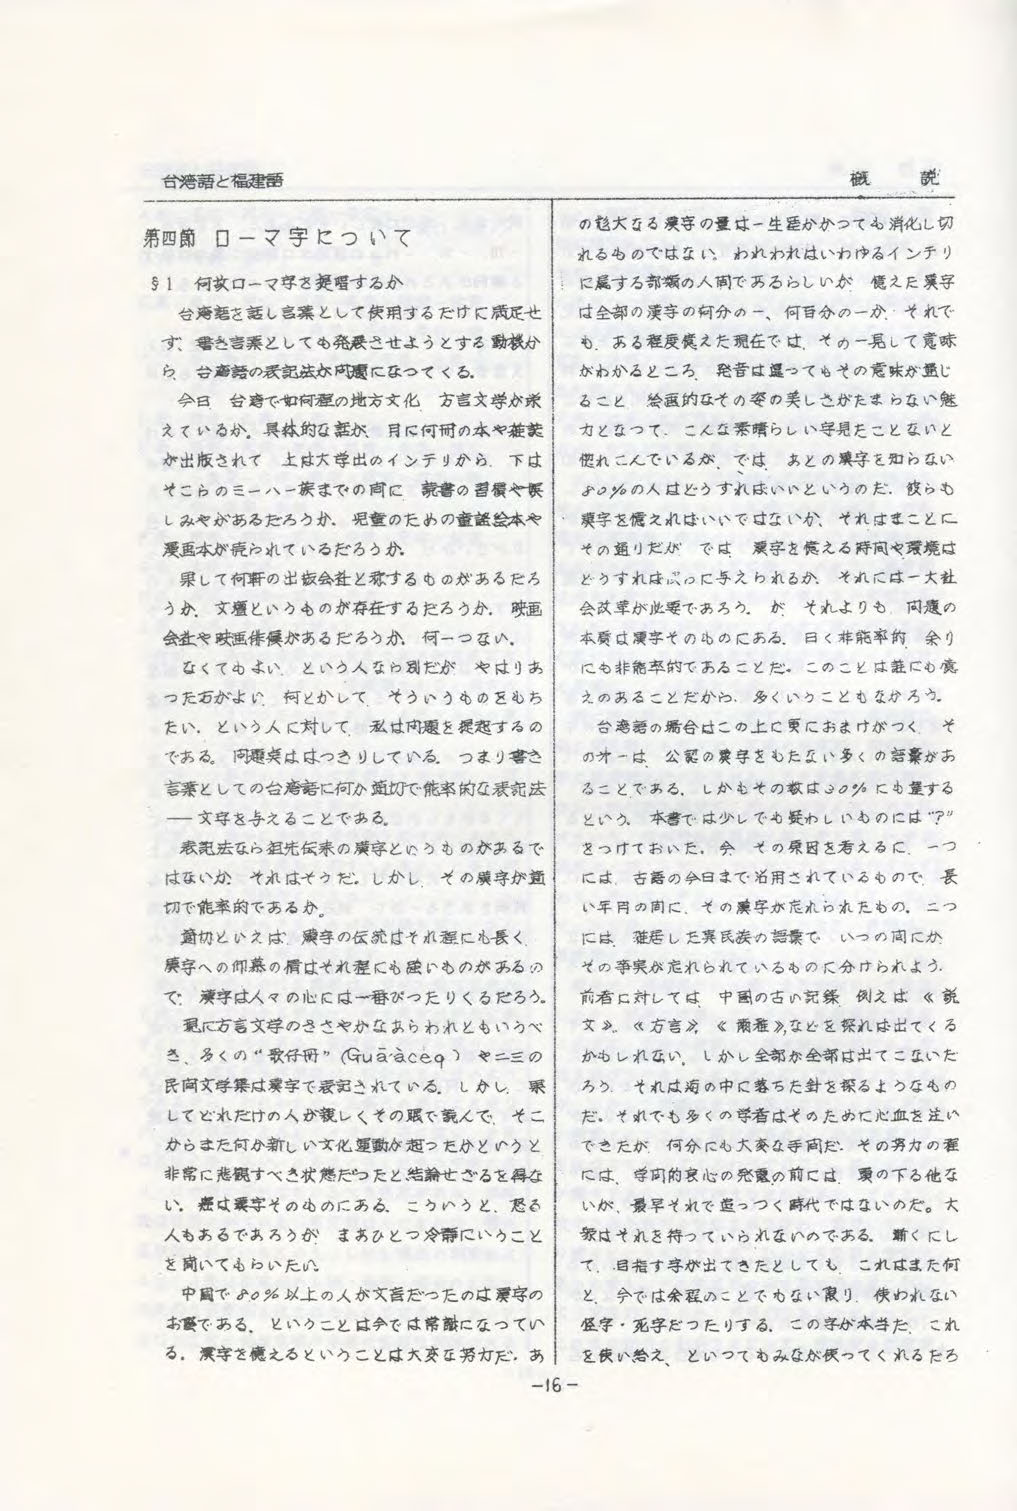 台湾語と福建語
概　説
第四節 ローマ字について
§1 何故ローマ字を提唱するか
台湾語を話し言葉として使用するだけに満足せ
ず、書き言葉としても発展させようとする動機か
ら、台湾語の表記法が問題になってくる。
今日、台湾で如何程の地方文化、方言文学が栄
えているか。具体的な話が、月に何冊の本や雑誌
が出版されて、上は大学出のインテリから、下は
そこらのミーハー族までの間に、読書の習慣や楽
しみやがあるだろうか。児童のための童謡絵本や
漫画本が売られているだろうか。
果して何軒の出版会社と称するものがあるだろ
うか。文壇というものが存在するだろうか。映画
会社や映画俳優があるだろうか。何一つない。
なくてもよい、という人なら別だが、やはりあ
った方がよい、何とかして、そういうものをもち
たい、という人に対して、私は問題を提起するの
である。問題点ははっきりしている。つまり書き
言葉としての台湾語に何か適切で能率的な表記法
──文字を与えることである。
表記法なら祖先伝来の漢字というものがあるで
はないか。それはそうだ。しかし、その漢字が適
切で能率的であるか。
適切といえば、漢字の伝統はそれ程にも長く、
漢字への仰慕の情はそれ程にも強いものがあるの
で、漢字は人々の心には一番ぴったりくるだろう。
現に方言文学のささやかなあらわれともいうべ
き、多くの“歌仔冊”(Guā-àceq)や二三の
民間文学集は漢字で表記されている。しかし、果
してどれだけの人が親しくその眼で読んで、そこ
からまた何か新しい文化運動が起ったかというと
非常に悲観すべき状態だったと結論せざるを得な
い。癌は漢字そのものにある。こういうと、怒る
人もあるであろうが、まあひとつ冷静にいうこと
を聞いてもらいたい。
中国で80%以上の人が文盲だったのは漢字の
お蔭である、ということは今では常識になってい
る。漢字を憶えるということは大変な努力だ。あ
の厖大なる漢字の量は一生涯かかっても消化し切
れるものではない。われわれはいわゆるインテリ
に属する部類の人間であるらしいが、憶えた漢字
は全部の漢字の何分の一、何百分の一か。それで
も、ある程度憶えた現在では、その一見して意味
がわかるところ、発音は違ってもその意味が通じ
ること、絵画的なその姿の美しさがたまらない魅
力となって、こんな素晴らしい字見たことないと
惚れこんでいるが、では、あとの漢字を知らない
80%の人はどうすればいいというのだ。彼らも
漢字を憶えればいいではないか、それはまことに
その通りだが、では、漢字を憶える時間や環境は
どうすればぶっに与えられるか。それには一大社
会改革が必要であろう。が、それよりも、問題の
本質は漢字そのものにある。曰く非能率的、余り
にも非能率的であることだ。このことは誰にも覚
えのあることだから、多くいうこともなかろう。
台湾語の場合はこの上に更におまけがつく。そ
のオ一は、公認の漢字をもたない多くの語彙があ
ることである。しかもその数は30%にも達する
という。本書では少しでも疑わしいものには“?”
をつけておいた。今、その原因を考えるに、一つ
には、古語の今日まで沿用されているもので、長
い年月の間に、その漢字が忘れられたもの。二つ
には、雑居した異民族の語彙で、いつの間にか
その事実が忘れられているものに分けられよう。
前者に対しては、中国の古い記録、例えば、《説
文》、《方言》、《爾雅》、などを探れば出てくる
かもしれない。しかし全部が全部は出てこないだ
ろう。それは海の中に落ちた針を探るようなもの
だ。それでも多くの学者はそのために心血を注い
できたが、何分にも大変な手間だ。その努力の程
には、学問的良心の発露の前には、頭の下る他な
いが、最早それで追っつく時代ではないのだ。大
衆はそれを待っていられないのである。漸くにし
て、目指す字が出てきたとしても、これはまた何
と、今では余程のことでもない限り、使われない
怪字・死字だったりする。この字が本当だ、これ
を使い給え、といってもみなが使ってくれるだろ
－16－